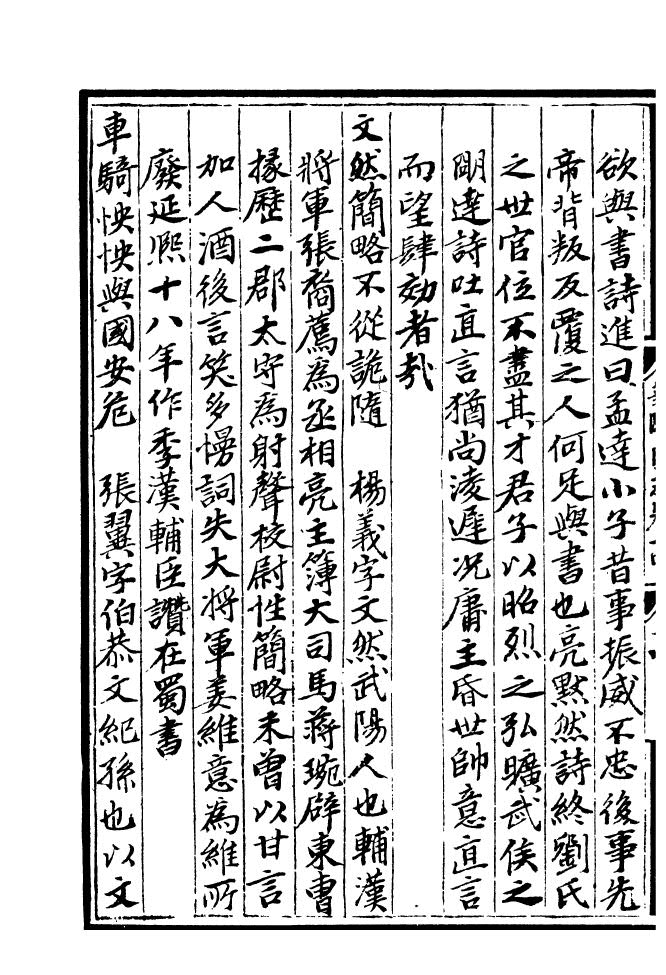 欲與書詩進曰孟達小子昔事振威不忠後事先
帝背叛反覆之人何足與書也亮默然詩終劉氏
之世官位不盡其才君子以昭烈之弘曠武侯之
明達詩吐直言猶尚淩遲况庸主昏世帥意直言
而望肆効者㦲
文然簡略不從詭隨　楊義字文然武陽人也輔漢
將軍張裔薦為丞相亮主簿大司馬蔣琬辟東曹
掾歷二郡太守為射聲校尉性簡略未曾以甘言
加人酒後言笑多慢詞失大將軍姜維意為維所
廢延熈十八年作季漢輔臣讚在蜀書
車騎怏怏與國安危　張翼字伯恭文紀孫也以文